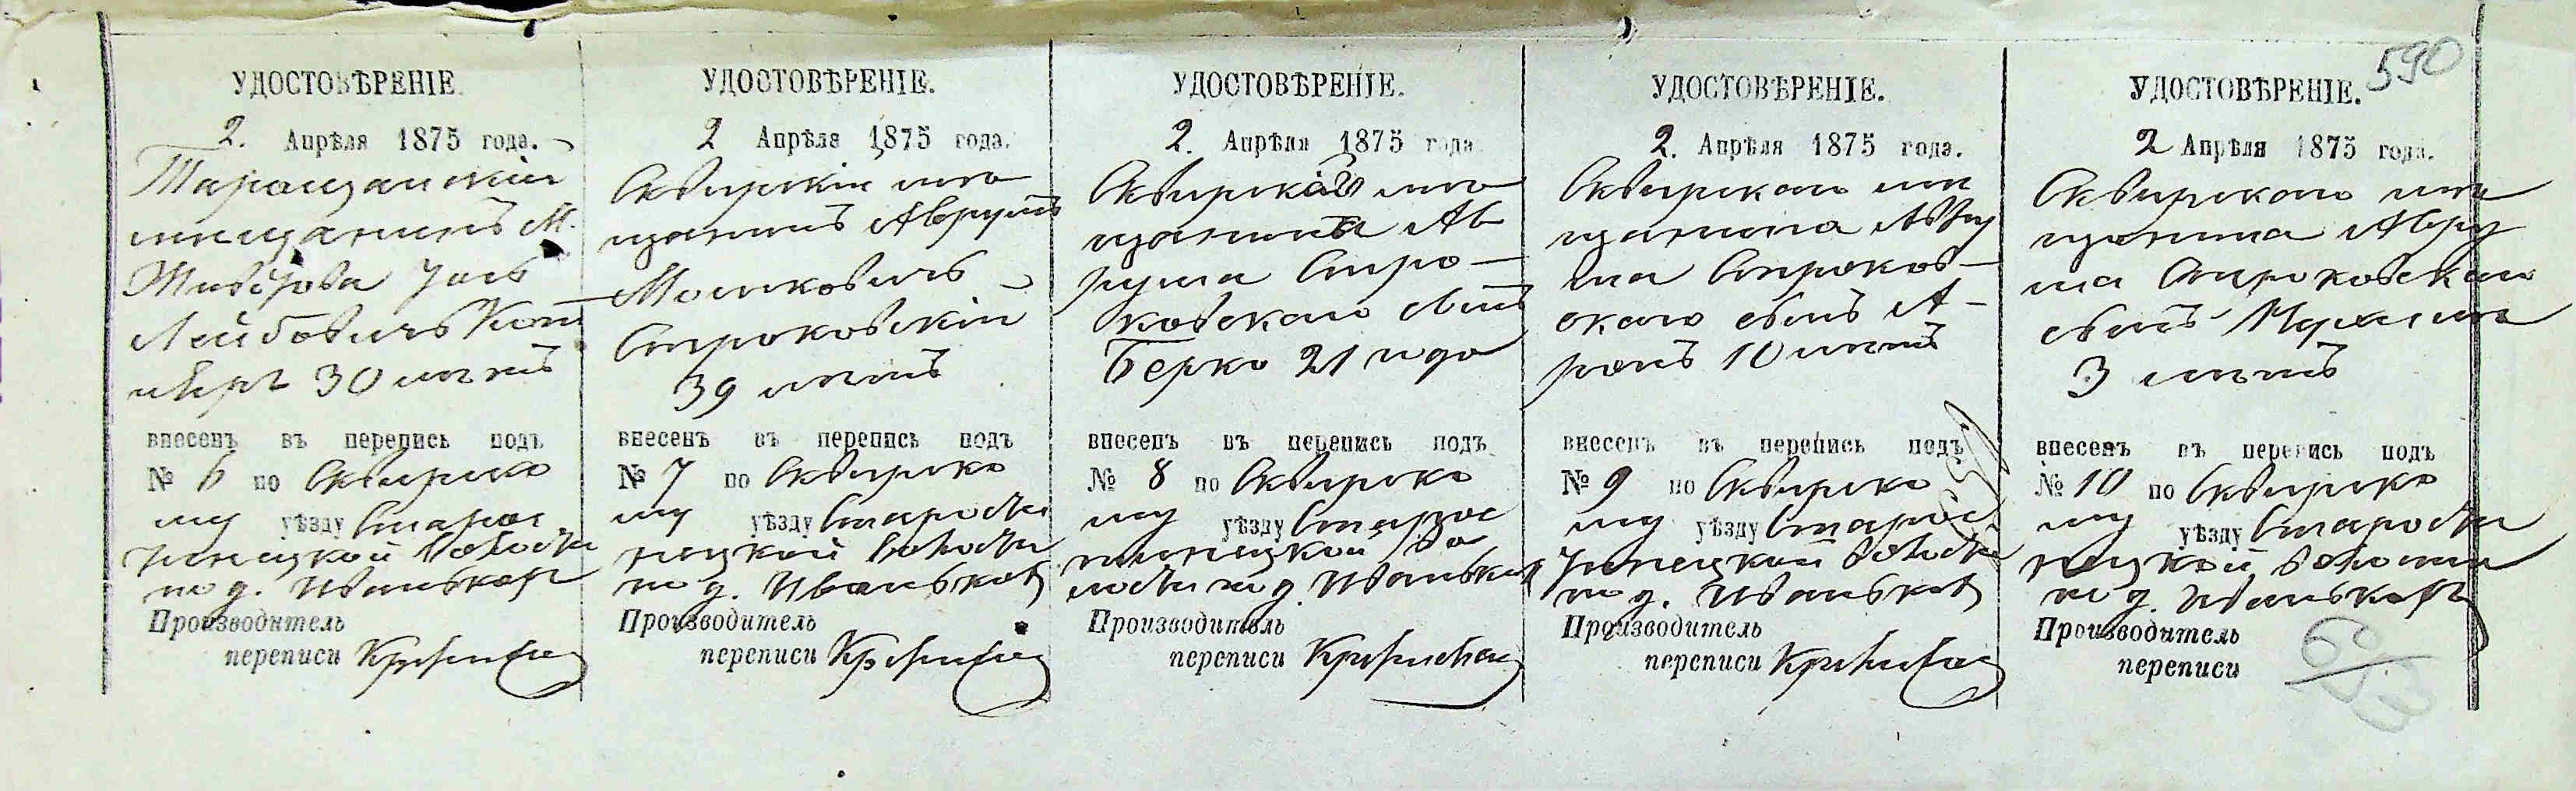 590
УДОСТОВѢРЕНІЕ.
2. Апрѣля 1875 года.
Таращанскій
мѣщанинъ М.
Лейбовичъ
30 лѣтъ
внесенъ въ перепись подъ
№ 6 по Сквирско
му уѣзду Старос
тинецкой волости
д. Иваньков
Производитель
переписи
УДОСТОВѢРЕНІЕ.
2 Апрѣля 1875 года.
Сквирскій мѣ
щанинъ Аврумъ
Мошковичъ
Строковскій
39 лѣтъ
внесенъ въ перепись подъ
№ 7 по Сквирско
му уѣзду Старости
нецкой волости
д. Иваньков
Производитель
переписи
УДОСТОВѢРЕНІЕ.
2. Апрѣля 1875 года.
Сквирскаго мѣ
щанина Ав
рума Стро
ковскаго сынъ
Берко 21 года
внесенъ въ перепись подъ
№ 8 по Сквирско
му уѣзду Старос
тинецкой во
лости д. Иваньков
Производитель
переписи
УДОСТОВѢРЕНІЕ.
2. Апрѣля 1875 года.
Сквирскаго мѣ
щанина Авру
ма Строков
скаго сынъ А
ронъ 10 лѣтъ
внесенъ въ перепись подъ
№ 9 по Сквирско
му уѣзду Старос
тинецкой волости
д. Иваньков
Производитель
переписи
УДОСТОВѢРЕНІЕ.
2 Апрѣля 1875 года.
Сквирскаго мѣ
щанина Авру
ма Строковскаго
сынъ
3 лѣтъ
внесенъ въ перепись подъ
№ 10 по Сквирско
му уѣзду Старости
нецкой волости
д. Иваньков
Производитель
переписи